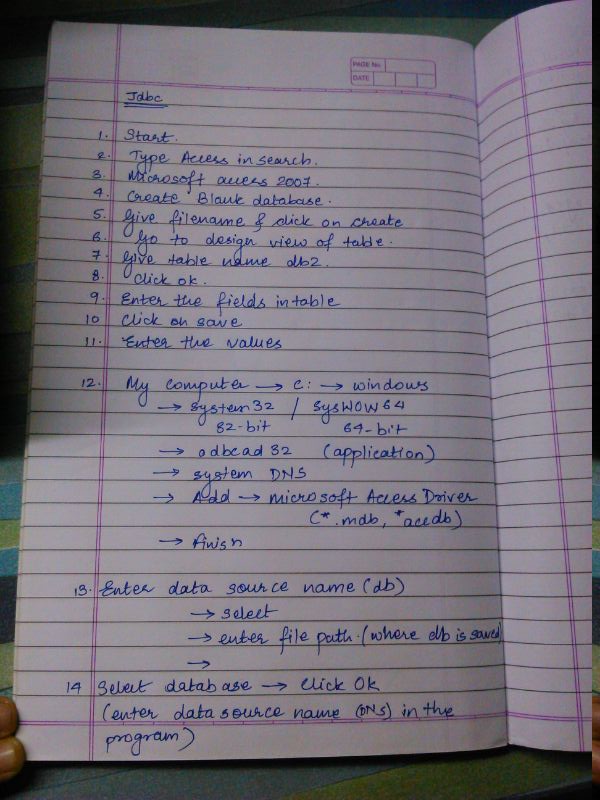 PAGE No.
DATE
Jdbc
1. Start.
2. Type Access in search.
3. Microsoft access 2007.
4. Create Blank database.
5. Give filename & click on create
6. Go to design view of table.
7. Give table name db2.
8. Click ok.
9. Enter the fields in table
10 Click on save
11. Enter the values
12. My computer → C: → windows
→ system32 / sysWOW64
32-bit 64-bit
→ odbcad 32 (application)
→ system DNS
→ Add → Microsoft Access Driver
(*.mdb, *accdb)
→ finish
13. Enter data source name (db)
→ select
→ enter file path. (where db is saved)
→
14 Select database → Click Ok
(enter data source name (DNS) in the
program)